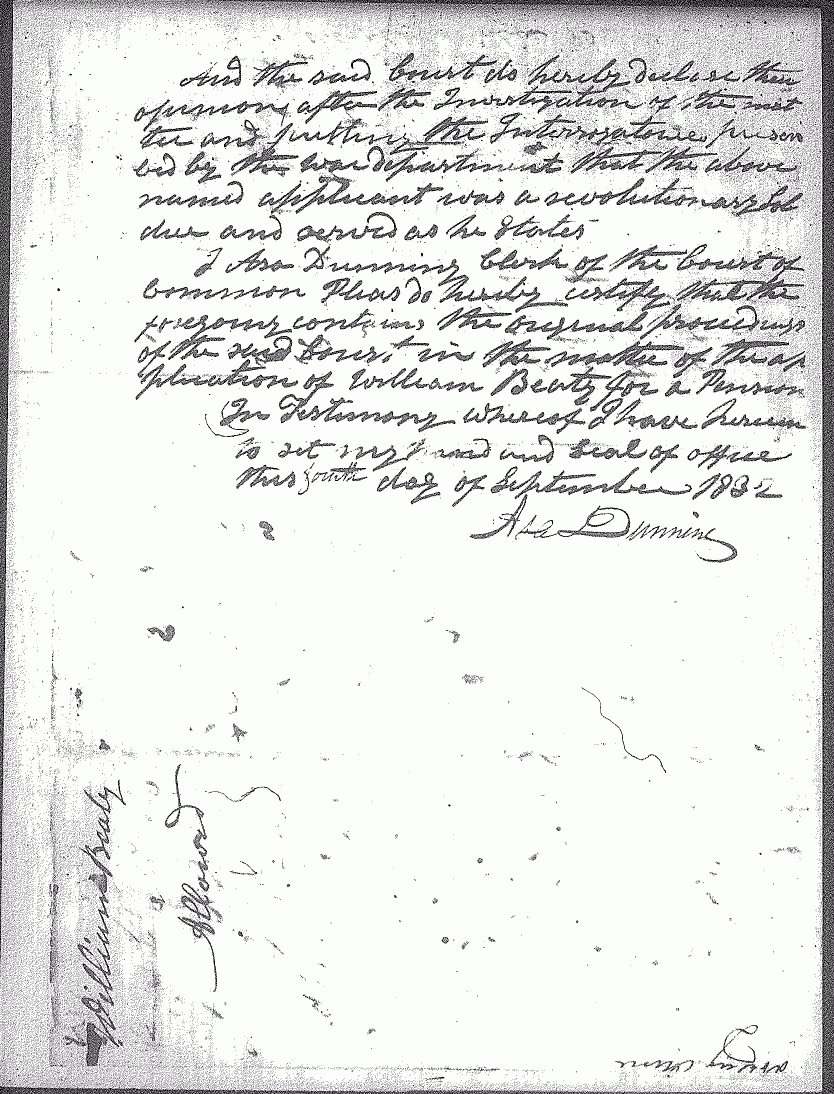 And the said Court do hereby declare their
opinion, after the Investigation of the mat
ter and putting the Interrogatories prescri
bed by the war department that the above
named applicant was a revolutionary Sol
dier and served as he States
I Asa Dunning Clerk of the Court of
Common Pleas do hereby certify that the
foregoing contains the original proceedings
of the said Court in the matter of the ap
plication of William Beaty for a Pension
In Testimony whereof I have hereun
to set my hand and seal of office
this fourth day of September 1832
Asa Dunning
William Beaty
Allowed